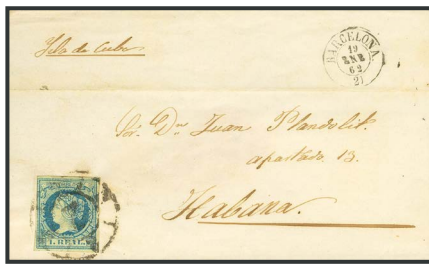 Isla de Cuba
BARCELONA.
19
ENE
62
Sor. Dn Juan Plandolit.
apartado 13.
Habana.
1. REAL.